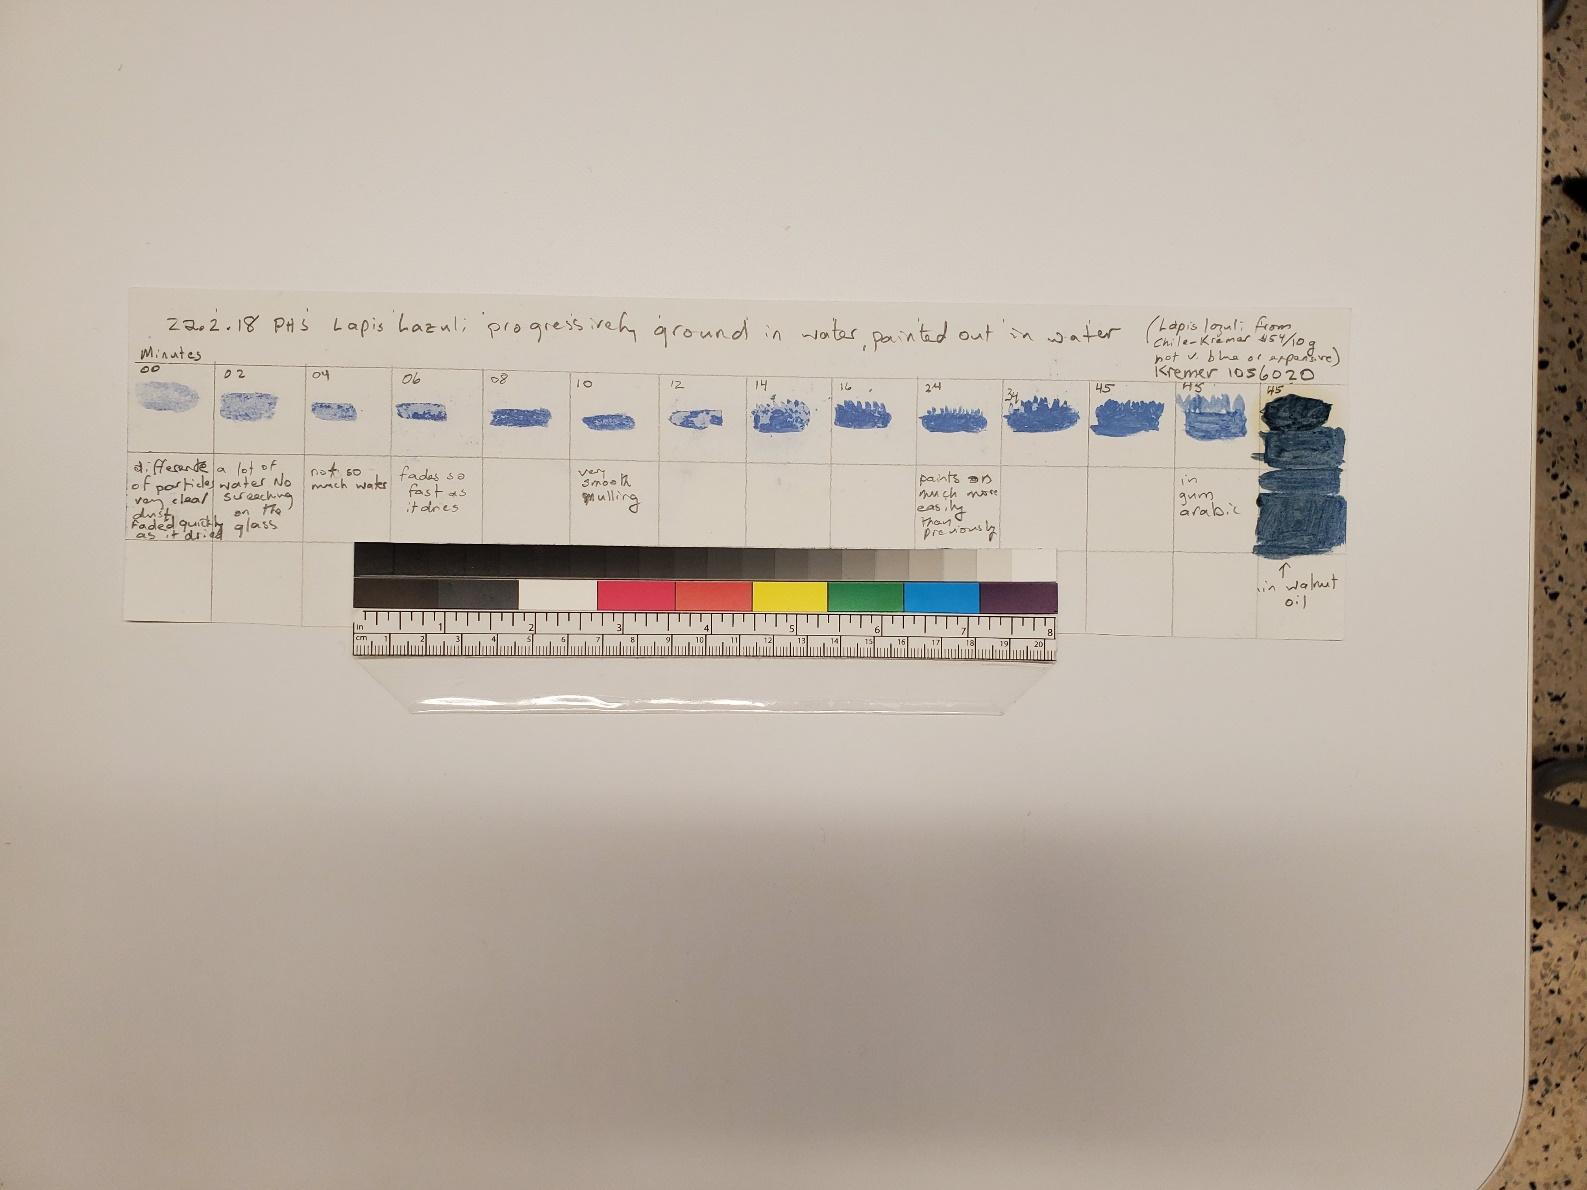 22.2.18 PHS Lapis Lazuli progressively ground in water, painted out in water
(Lapis lazuli from
Chile-Kremer $54/10g
not v. blue or expensive)
Kremer 1056020
Minutes
00 02 04 06 08 10 12 14 16 24 34 45 45 45
difference
of particles
very clear
dust,
Faded quickly
as it dried
a lot of
water No
screeching
on the
glass
not so
much water
fades so
fast as
it dries
very
smooth
mulling
paints on
much more
easily
than
previously
in
gum
arabic
↑
in walnut
oil
in 1 2 3 4 5 6 7 8
cm 1 2 3 4 5 6 7 8 9 10 11 12 13 14 15 16 17 18 19 20